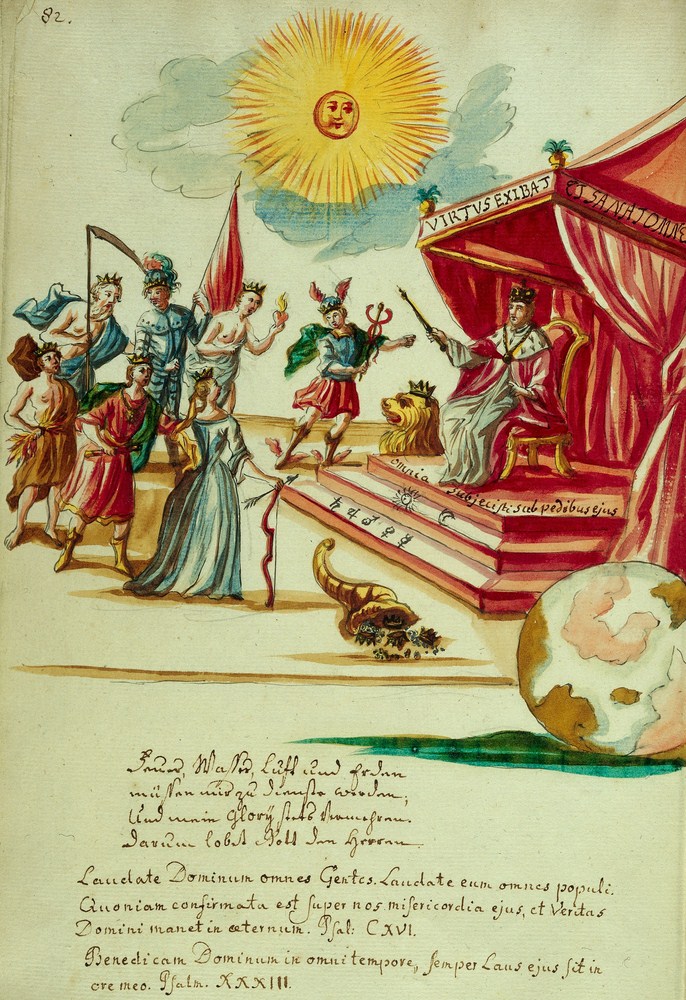 82.
VIRTVS EXIBAT
ET SANAT OMNE
omnia subjecisti sub pedibus ejus
☉ ☾
♄ ♃ ♂ ♀ ☿
Feuer, Wasser, Lufft und Erden
müssen mir zu dienste werden;
Und mein Glory stets vermehren.
Darum lobet Gott den Herren.
Laudate Dominum omnes Gentes. Laudate eum omnes populi.
Quoniam confirmata est super nos misericordia ejus, et Veritas
Domini manet in æternum. Psal: CXVI.
Benedicam Dominum in omni tempore, semper Laus ejus sit in
ore meo. Psalm. XXXIII.